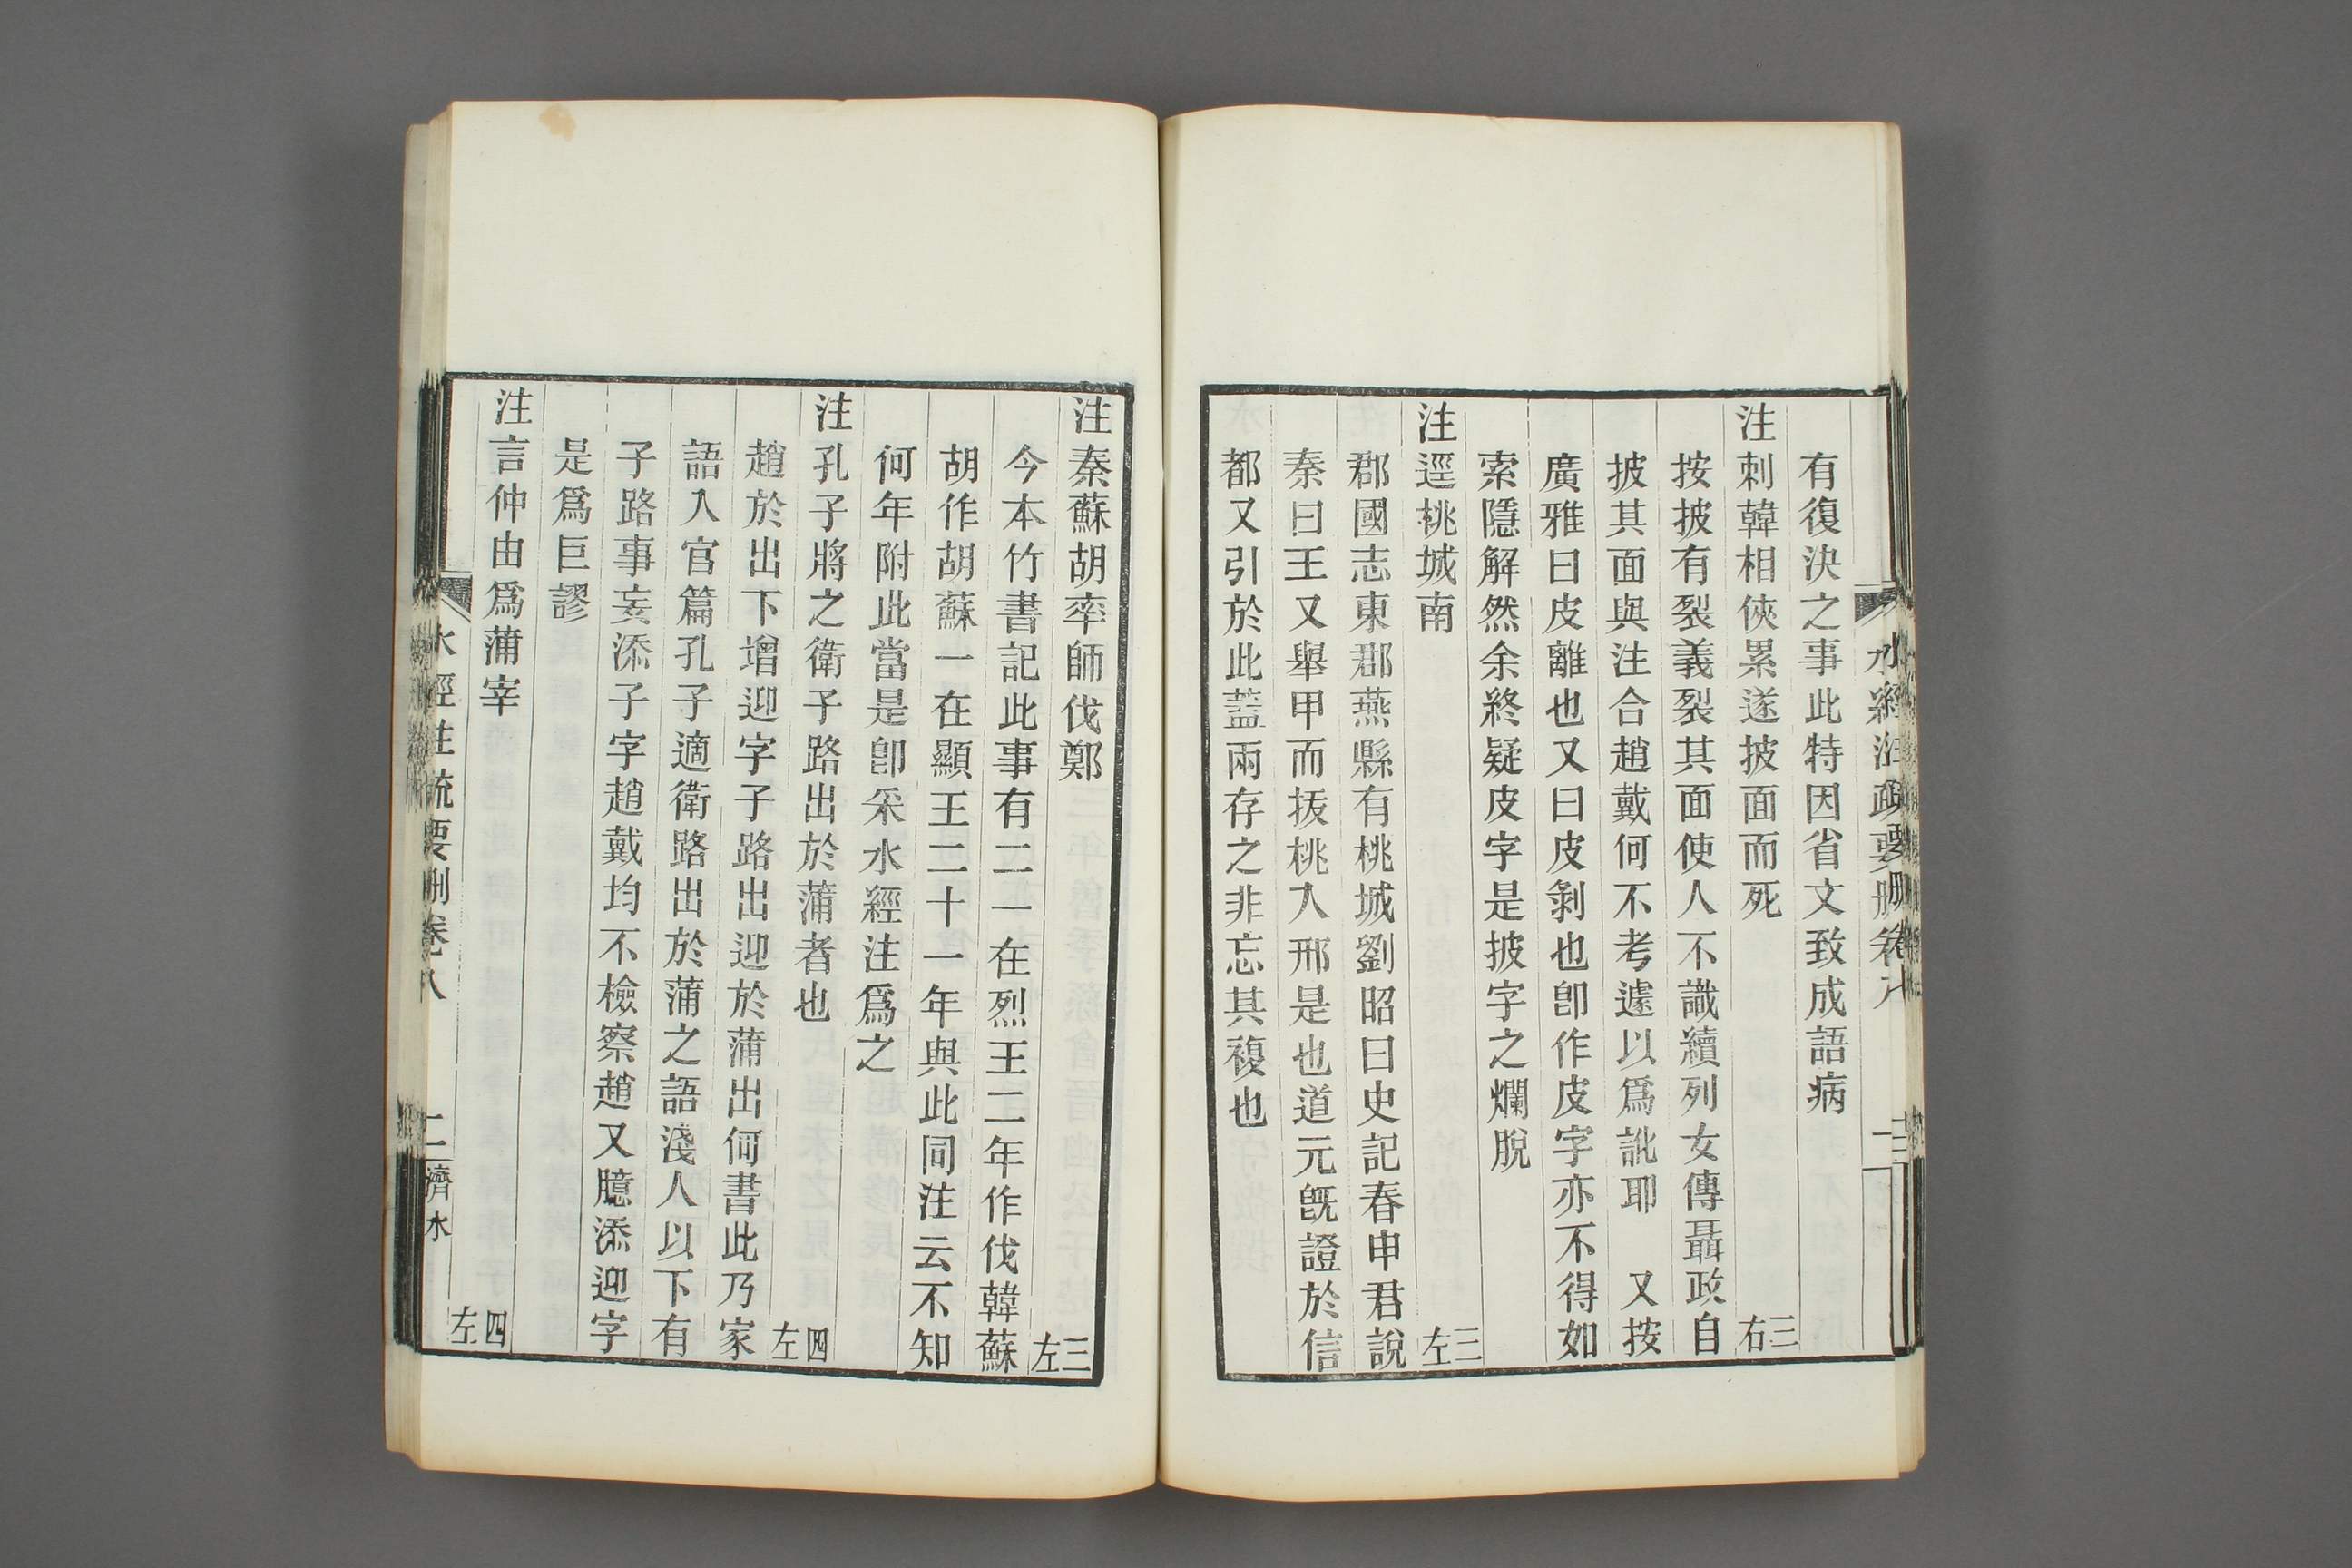 水經注疏要刪卷八
有復決之事此特因省文致成語病
注刺韓相俠累遂披面而死　三右
按披有裂義裂其面使人不識續列女傳聶政自
披其面與注合趙戴何不考遽以爲訛耶　又按
廣雅曰皮離也又曰皮剝也卽作皮字亦不得如
索隱解然余終疑皮字是披字之爛脫
注逕桃城南　三左
郡國志東郡燕縣有桃城劉昭曰史記春申君說
秦曰王又舉甲而拔桃入邢是也道元旣證於信
都又引於此蓋兩存之非忘其複也
注秦蘇胡率師伐鄭　三左
今本竹書記此事有二一在烈王二年作伐韓蘇
胡作胡蘇一在顯王二十一年與此同注云不知
何年附此當是卽采水經注爲之
注孔子將之衛子路出於蒲者也　四左
趙於出下增迎字子路出迎於蒲出何書此乃家
語入官篇孔子適衛路出於蒲之語淺人以下有
子路事妄添子字趙戴均不檢察趙又臆添迎字
是爲巨謬
注言仲由爲蒲宰　四左
水經注疏要刪卷八　二　濟水